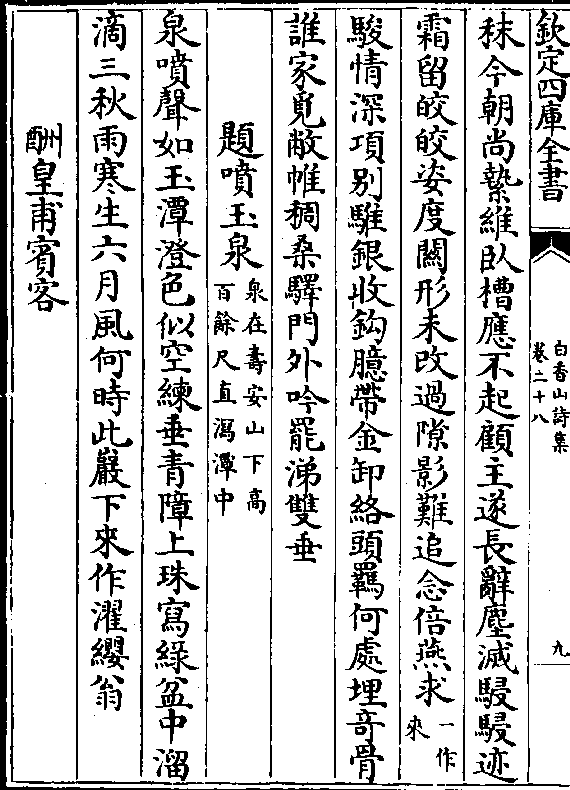 欽定四庫全書
白香山詩集
卷二十八
九
秣今朝尚縶維臥槽應不起顧主遂長辭塵滅駸駸迹
霜留皎皎姿度闗形未改過隙影難追念倍燕求一作來
駿情深項别騅銀收鈎臆帶金卸絡頭羈何處埋竒骨
誰家覓敝帷稠桑驛門外吟罷涕雙垂
題噴玉泉泉在壽安山下高百餘尺直瀉潭中
泉噴聲如玉潭澄色似空練垂青障上珠寫綠盆中溜
滴三秋雨寒生六月風何時此巖下來作濯纓翁
酬皇甫賓客